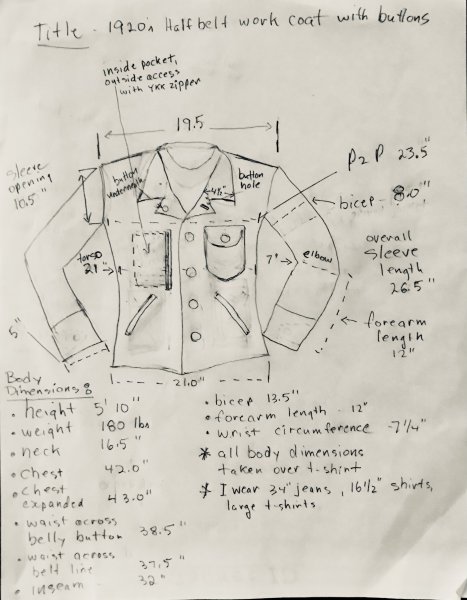 Title - 1920's Half belt work coat with buttons
inside pocket,
outside access
with YKK zipper
19.5
sleeve
opening
10.5"
button
underneath
4½"
button
hole
P2P 23.5"
bicep - 8.0"
torso
21"
7"
elbow
overall
sleeve
length
26.5"
forearm
length
12"
5"
21.0"
Body
Dimensions:
• height 5' 10"
• weight 180 lbs
• neck 16.5"
• chest 42.0"
• chest
expanded 43.0"
• waist across
belly button 38.5"
• waist across
belt line 37.5"
• inseam 32"
• bicep 13.5"
• forearm length - 12"
• wrist circumference - 7 1/4"
* all body dimensions
taken over t-shirt
* I wear 34" jeans, 16½" shirts,
large t-shirts